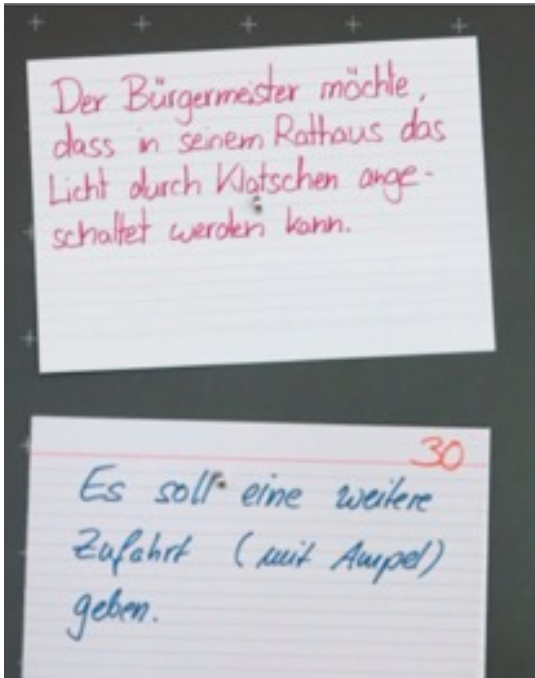 Der Bürgermeister möchte,
dass in seinem Rathaus das
Licht durch Klatschen ange-
schaltet werden kann.
30
Es soll eine weitere
Zufahrt (mit Ampel)
geben.